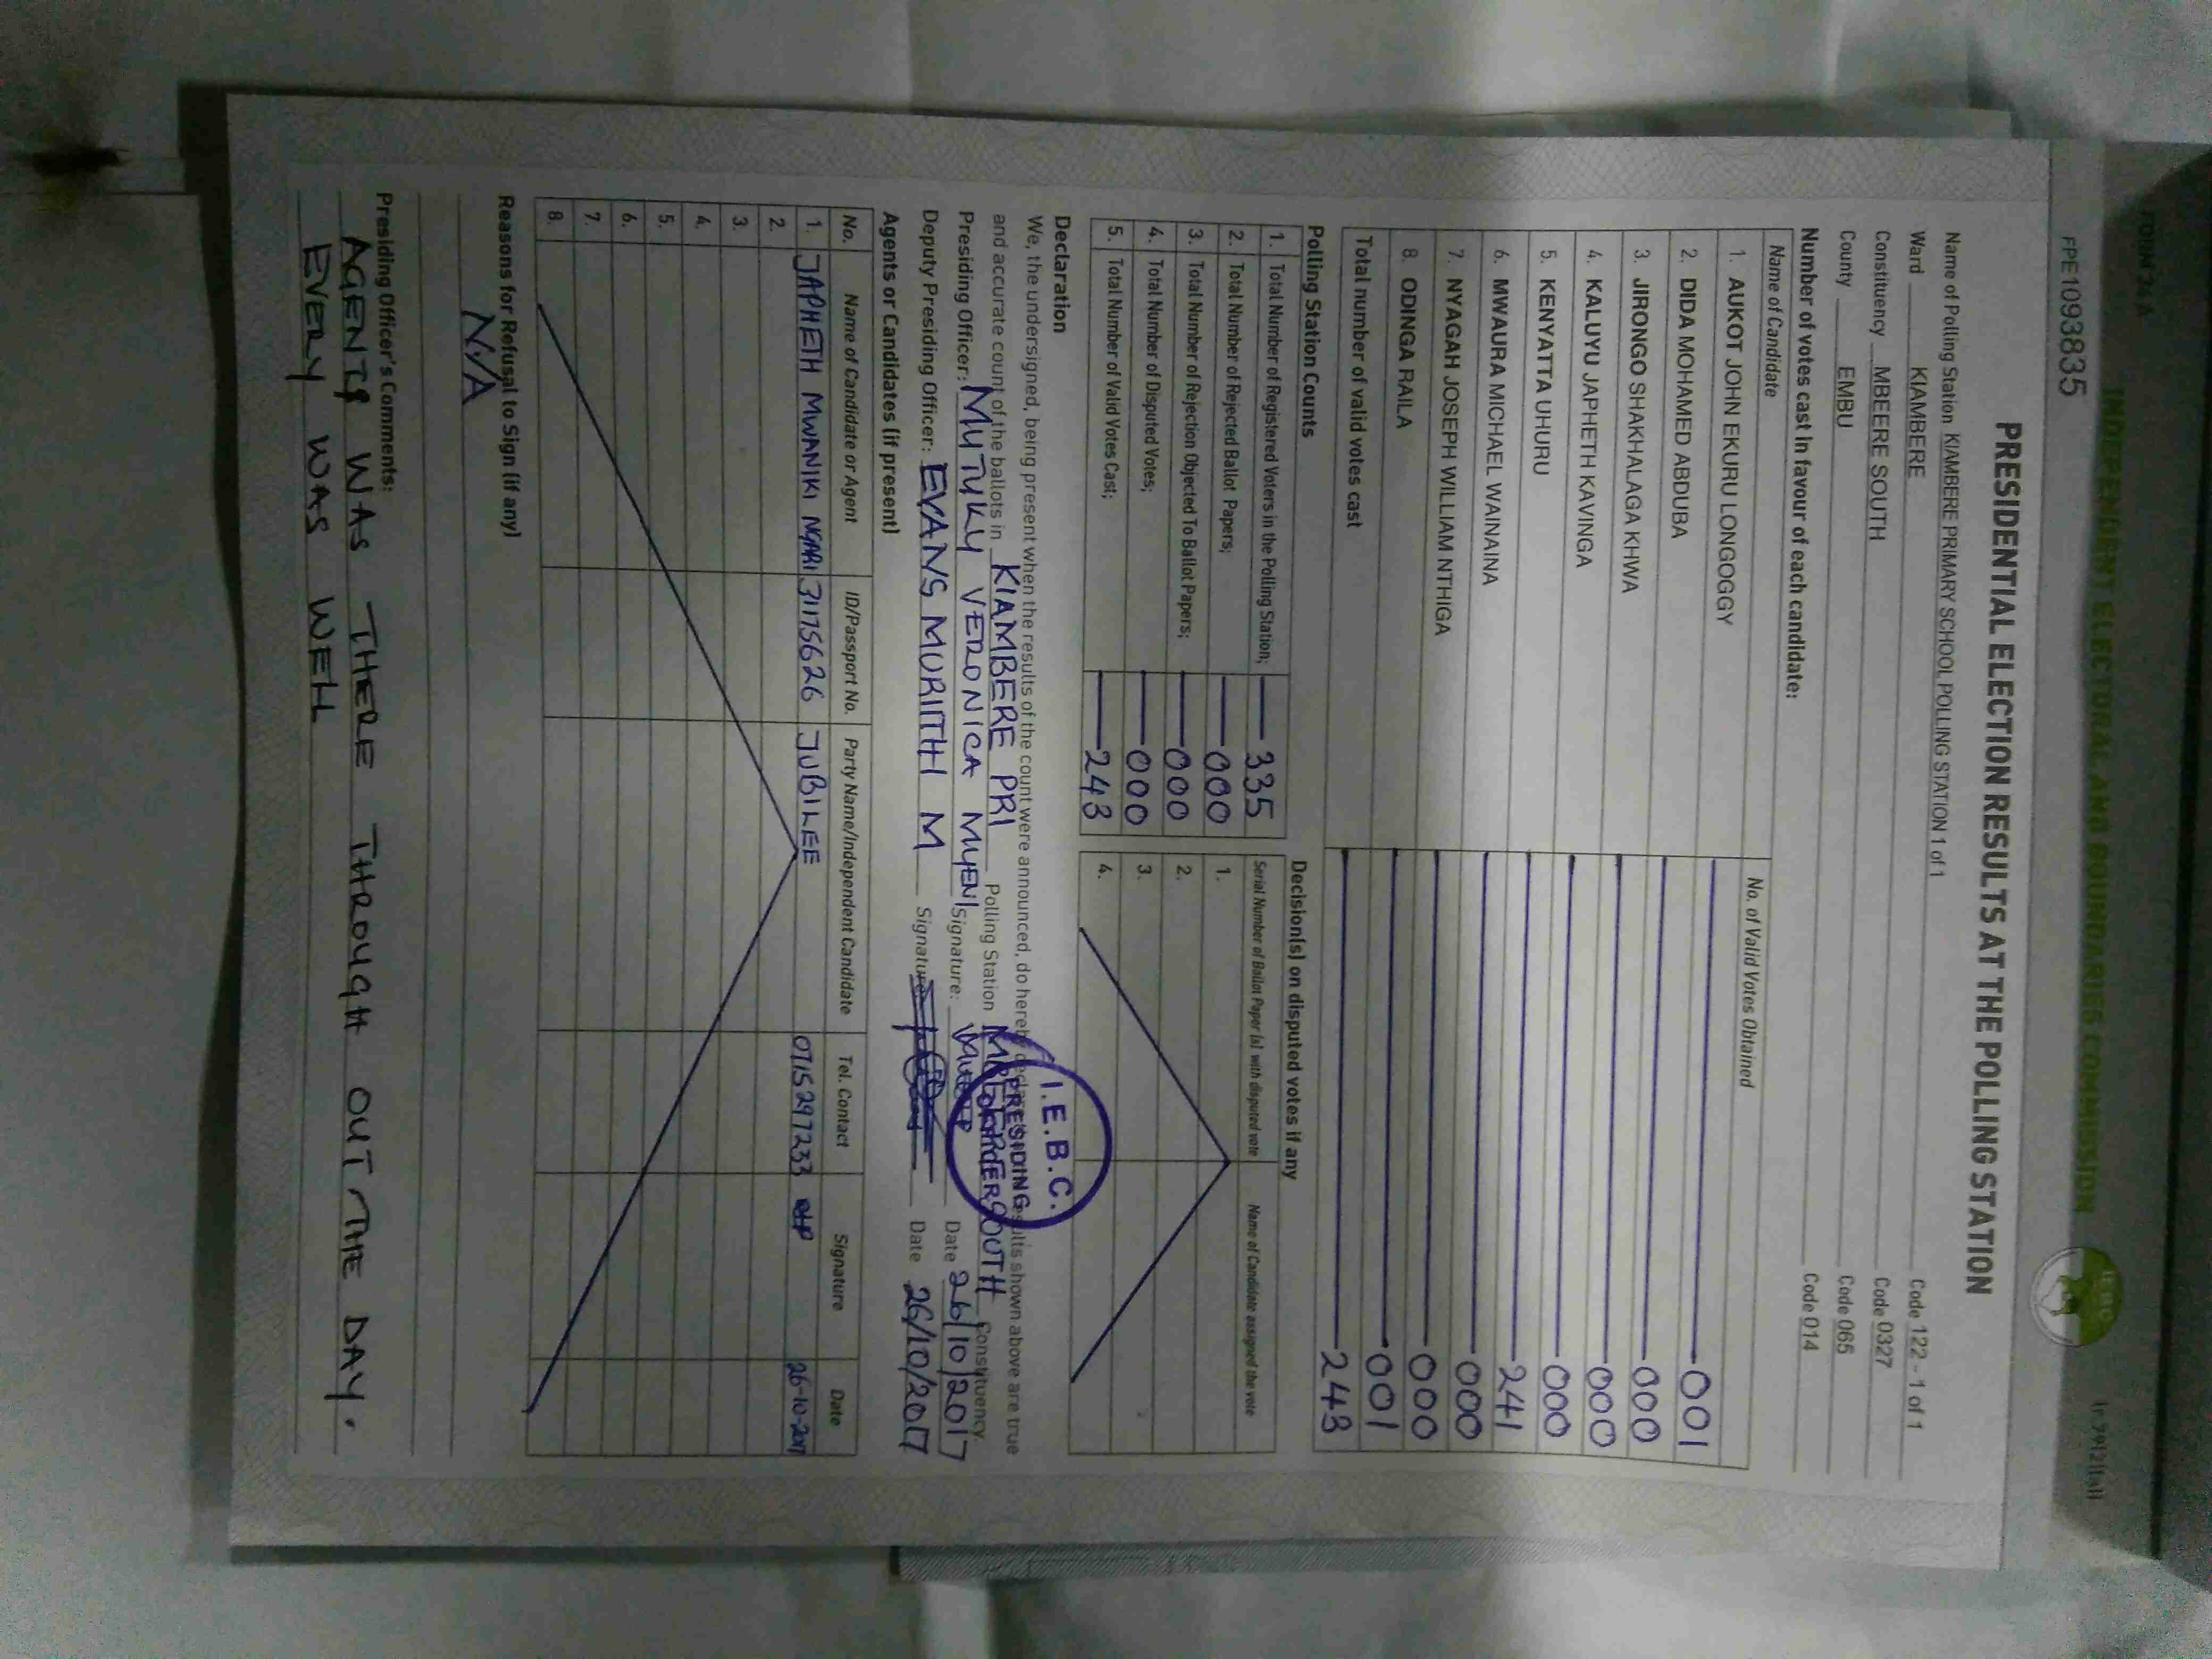 FORM 34A
INDEPENDENT ELECTORAL AND BOUNDARIES COMMISSION
IEBC
FPE1093835
PRESIDENTIAL ELECTION RESULTS AT THE POLLING STATION
Name of Polling Station KIAMBERE PRIMARY SCHOOL POLLING STATION 1 of 1 Code 122 - 1 of 1
Ward KIAMBERE Code 0327
Constituency MBEERE SOUTH Code 065
County EMBU Code 014
Number of votes cast in favour of each candidate:
Name of Candidate No. of Valid Votes Obtained
1. AUKOT JOHN EKURU LONGOGGY 001
2. DIDA MOHAMED ABDUBA 000
3. JIRONGO SHAKHALAGA KHWA 000
4. KALUYU JAPHETH KAVINGA 000
5. KENYATTA UHURU 241
6. MWAURA MICHAEL WAINAINA 000
7. NYAGAH JOSEPH WILLIAM NTHIGA 000
8. ODINGA RAILA 001
Total number of valid votes cast 243
Polling Station Counts
1. Total Number of Registered Voters in the Polling Station; 335
2. Total Number of Rejected Ballot Papers; 000
3. Total Number of Rejection Objected To Ballot Papers; 000
4. Total Number of Disputed Votes; 000
5. Total Number of Valid Votes Cast; 243
Decision(s) on disputed votes if any
Serial Number of Ballot Paper (s) with disputed vote Name of Candidate assigned the vote
1.
2.
3.
4.
Declaration
We, the undersigned, being present when the results of the count were announced, do hereby declare that the results shown above are true
and accurate count of the ballots in KIAMBERE PRI Polling Station SOUTH Constituency.
I.E.B.C.
PRESIDING
Presiding Officer: MUTUKU VERONICA MUENI Signature: Date 26/10/2017
Deputy Presiding Officer: EVANS MURIITHI M Signature Date 26/10/2017
Agents or Candidates (if present)
No. Name of Candidate or Agent ID/Passport No. Party Name/Independent Candidate Tel. Contact Signature Date
1. JAPHETH MWANIKI NGARI 31175626 JUBILEE 0715297233 26-10-2017
2.
3.
4.
5.
6.
7.
8.
Reasons for Refusal to Sign (if any)
N/A
Presiding Officer's Comments:
AGENTS WAS THERE THROUGH OUT THE DAY.
EVERY WAS WELL